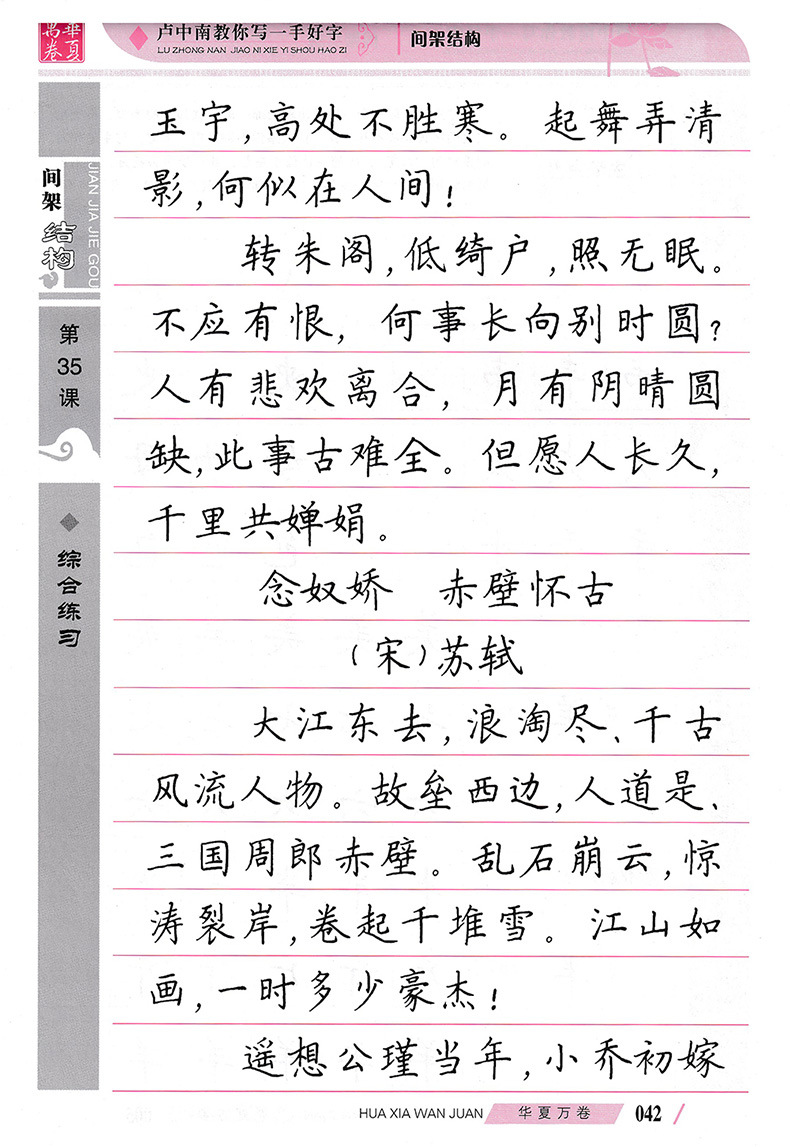 華夏
萬卷
卢中南教你写一手好字
LU ZHONG NAN JIAO NI XIE YI SHOU HAO ZI
间架结构
间架
结构
JIAN JIA JIE GOU
第
35
课
综合练习
玉宇,高处不胜寒。起舞弄清
影,何似在人间!
转朱阁,低绮户,照无眠。
不应有恨,何事长向别时圆?
人有悲欢离合,月有阴晴圆
缺,此事古难全。但愿人长久,
千里共婵娟。
念奴娇 赤壁怀古
(宋)苏轼
大江东去,浪淘尽、千古
风流人物。故垒西边,人道是、
三国周郎赤壁。乱石崩云,惊
涛裂岸,卷起千堆雪。江山如
画,一时多少豪杰!
遥想公瑾当年,小乔初嫁
HUA XIA WAN JUAN
华夏万卷
042